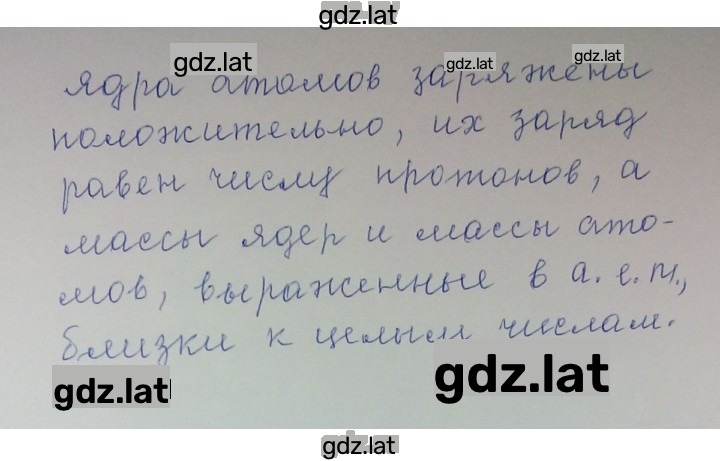 gdz.lat
gdz.lat
gdz.lat
gdz.lat
ядра атомов заряжены
положительно, их заряд
равен числу протонов, а
массы ядер и массы ато-
мов, выраженные в а.е.м.,
близки к целым числам.
gdz.lat
gdz.lat
gdz.lat